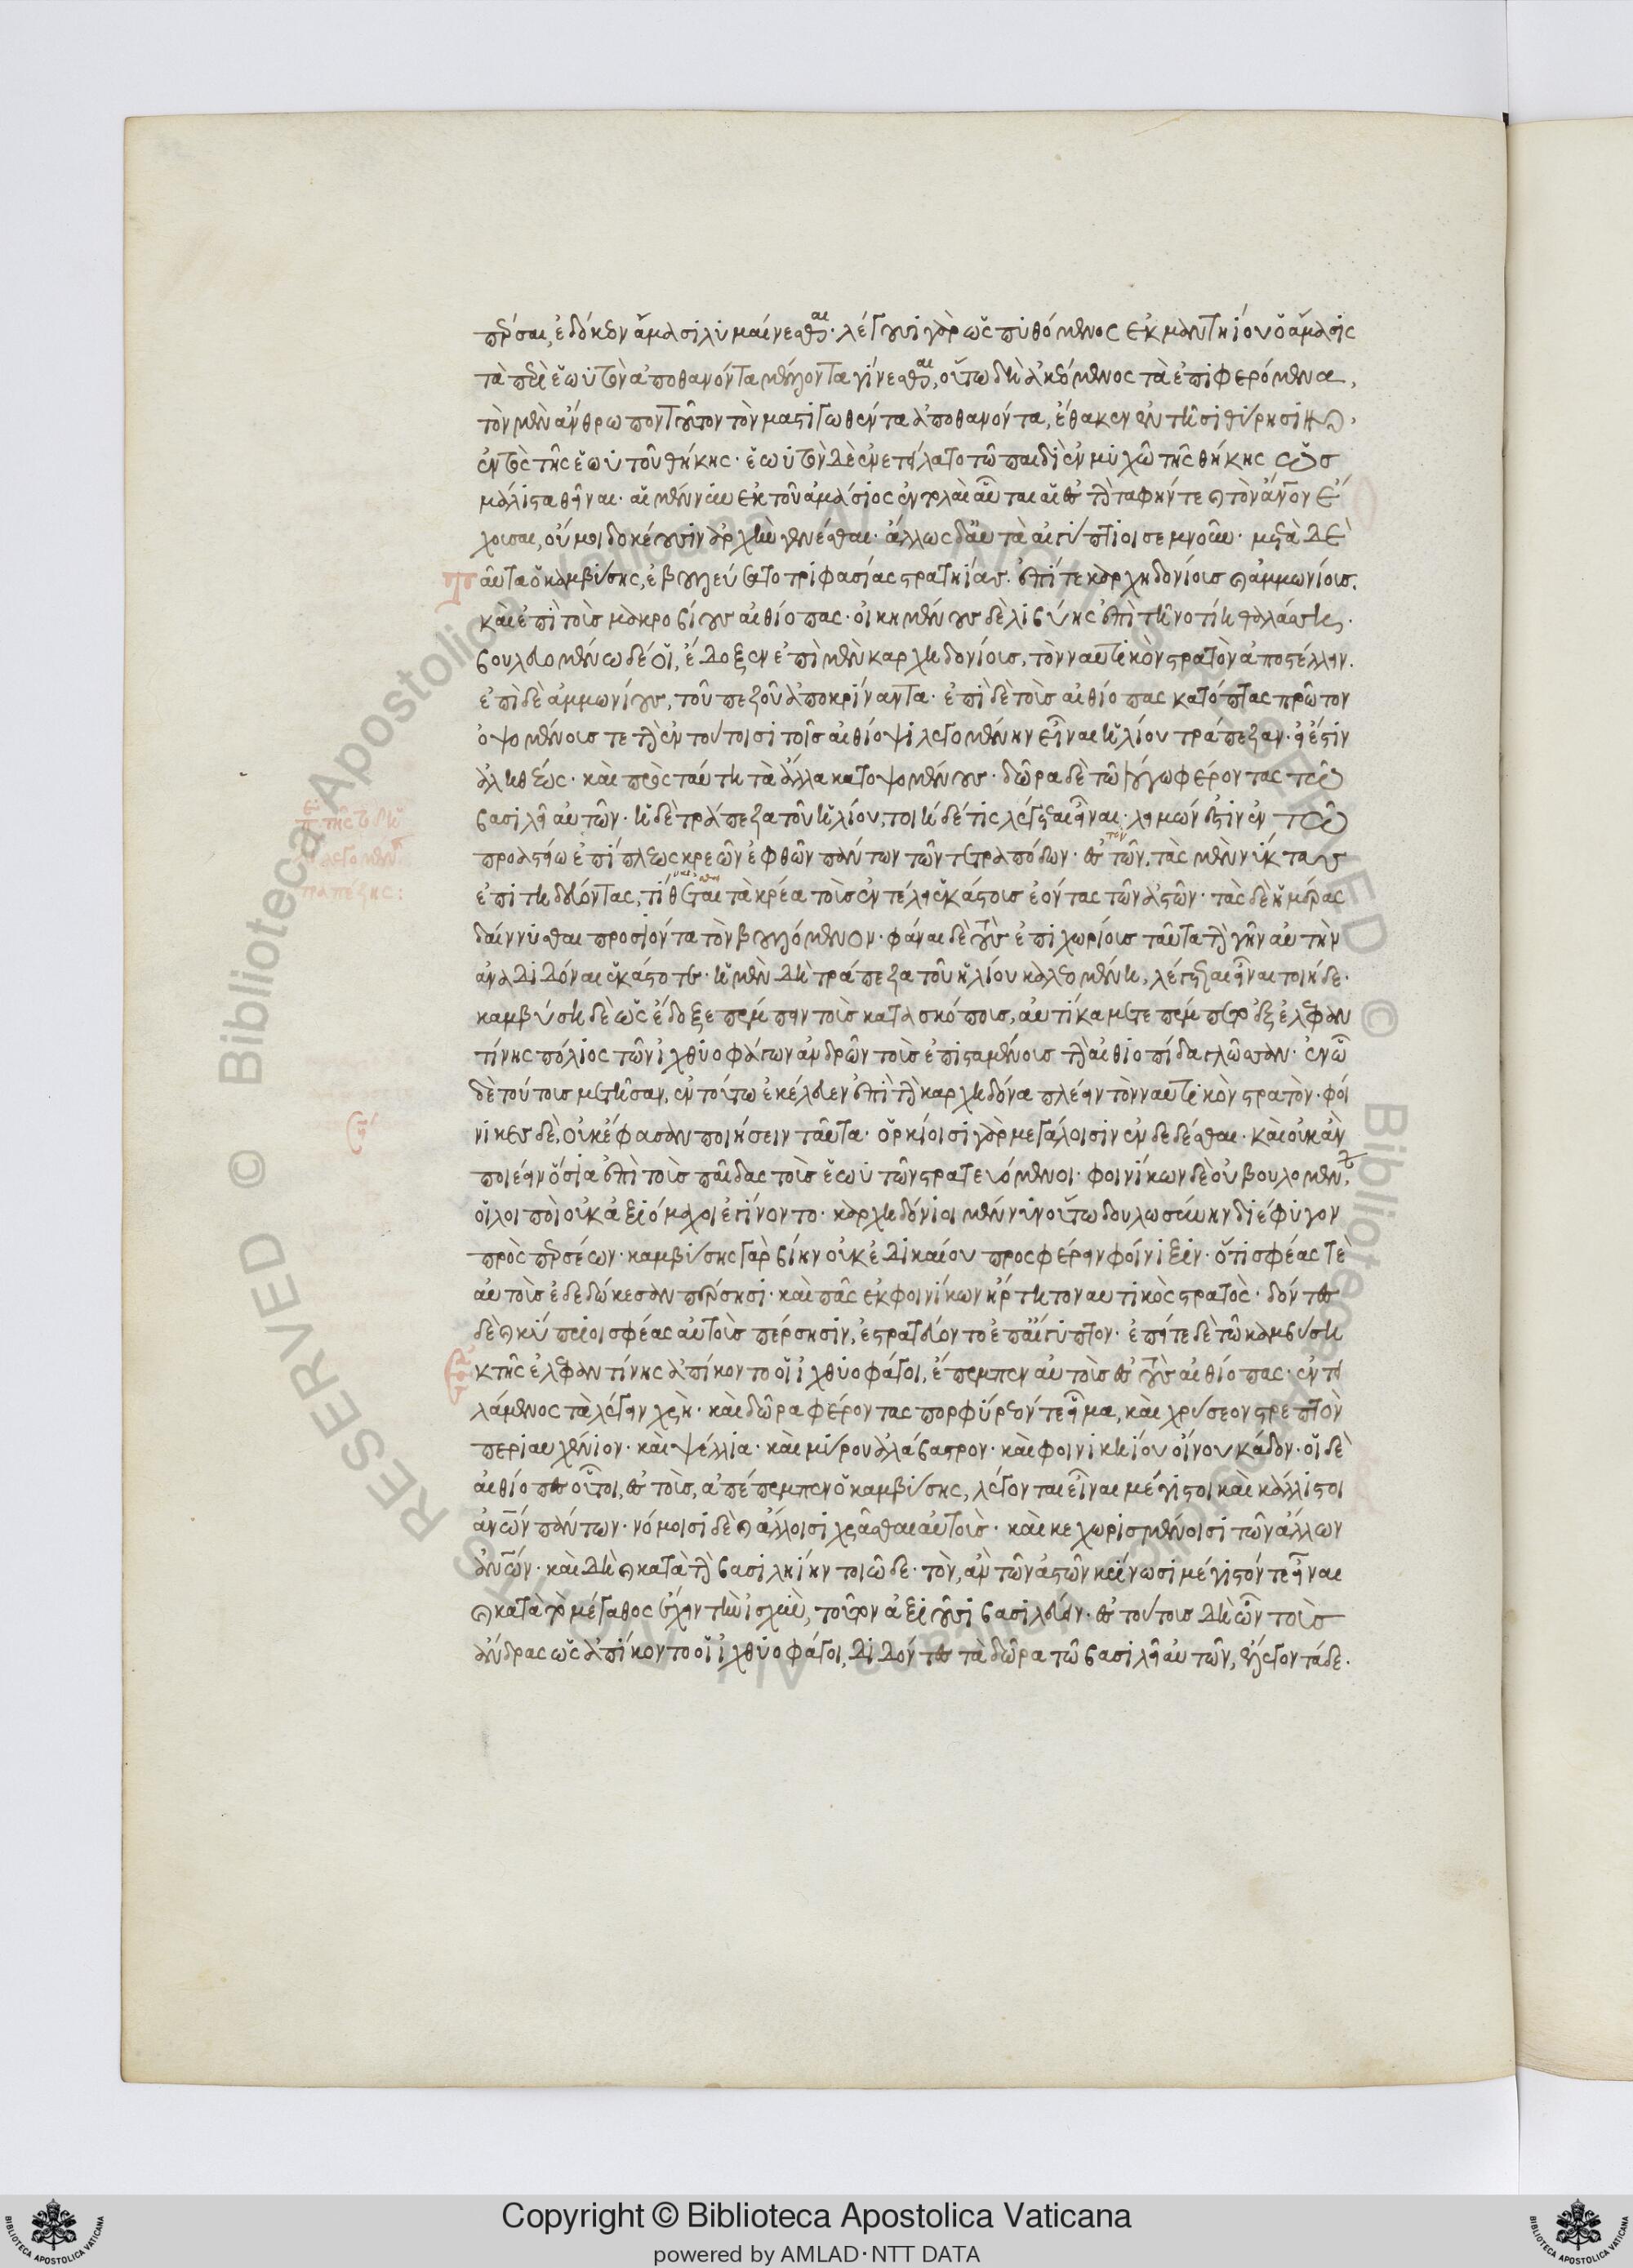 πέρσαι, ἐδόκεον ἀμάσι λυμαίνεσθαι· λέγουσι γὰρ ὡς πυθόμενος ἐκ μαντηίου ὁ ἄμασις
τὰ περὶ ἑωυτὸν ἀποθανόντα μέλλοντα γίνεσθαι, οὕτω δὴ ἀκεόμενος τὰ ἐπιφερόμενα,
τὸν μὲν ἄνθρωπον τοῦτον τὸν μαστιγωθέντα ἀποθανόντα, ἔθακεν ἐν τῆσι θύρησι
ἐντὸς τῆς ἑωυτοῦ θήκης· ἑωυτὸν δὲ ἐνετείλατο τῶ παιδὶ ἐν μυχῶ τῆς θήκης ὡς
μάλιστα θῆναι· αἱ μέν νυν ἐκ τοῦ ἀμάσιος ἐντολαὶ αὗται αἱ ἐς τὴν ταφήν τε καὶ τὸν ἄνον ἔ
χουσαι, οὔ μοι δοκέουσιν ἀρχὴν γενέσθαι· ἄλλως δ' αὐτὰ αἰγύπτιοι σεμνοῦν· μετὰ δὲ
ταῦτα ὁ καμβύσης, ἐβουλεύσατο τριφασίας στρατηίας· ἐπί τε καρχηδονίους καὶ ἀμμωνίους·
καὶ ἐπὶ τοὺς μακροβίους αἰθίοπας· οἰκημένους δὲ λιβύης ἐπὶ τῆ νοτίη θαλάσση·
βουλευομένω δέ οἱ, ἔδοξεν ἐπὶ μὲν καρχηδονίους, τὸν ναυτικὸν στρατὸν ἀποστέλλειν·
ἐπὶ δὲ ἀμμωνίους, τοῦ πεζοῦ ἀποκρίναντα· ἐπὶ δὲ τοὺς αἰθίοπας κατόπτας πρῶτον
ὀψομένους τε τὴν ἐν τούτοισι τοῖς αἰθίοψι λεγομένην εἶναι ἡλίου τράπεζαν· εἰ ἔστιν
ἀληθέως· καὶ πρὸς ταύτη τὰ ἄλλα κατοψομένους· δῶρα δὲ τῶ λόγω φέροντας τῶ
βασιλῆι αὐτῶν· ἡ δὲ τράπεζα τοῦ ἡλίου, τοιήδέ τις λέγεται εἶναι· λειμών ἐστιν ἐν τῶ
προαστείω ἐπίπλεως κρεῶν ἑφθῶν πάντων τῶν τετραπόδων· ἐς τὸν, τὰς μὲν νύκτας
ἐπιτηδεύοντας, τιθέναι τὰ κρέα τοὺς ἐν τέλει ἑκάστους ἐόντας τῶν ἀστῶν· τὰς δὲ ἡμέρας
δαίννυσθαι προσιόντα τὸν βουλόμενον· φάναι δὲ τοὺς ἐπιχωρίους ταῦτα τὴν γῆν αὐτὴν
ἀναδιδόναι ἑκάστοτε· ἡ μὲν δὴ τράπεζα τοῦ ἡλίου καλεομένη, λέγεται εἶναι τοιήδε·
καμβύση δὲ ὡς ἔδοξε πέμπειν τοὺς κατασκόπους, αὐτίκα μετεπέμπετο ἐξ ἐλεφαν
τίνης πόλιος τῶν ἰχθυοφάγων ἀνδρῶν τοὺς ἐπισταμένους τὴν αἰθιοπίδα γλῶσσαν· ἐν ὧ
δὲ τούτους μετῆσαν, ἐν τούτω ἐκέλευεν ἐπὶ τὴν καρχηδόνα πλέειν τὸν ναυτικὸν στρατὸν· φοί
νικες δὲ, οὐκ ἔφασαν ποιήσειν ταῦτα· ὁρκίοισι γὰρ μεγάλοισιν ἐνδεδέσθαι· καὶ οὐκ ἂν
ποιέειν ὅσια ἐπὶ τοὺς παῖδας τοὺς ἑωυτῶν στρατευόμενοι· φοινίκων δὲ οὐ βουλομένων,
οἱ λοιποὶ οὐκ ἀξιόμαχοι ἐγίνοντο· καρχηδόνιοι μέν νυν οὕτω δουλωσύνην διέφυγον
πρὸς περσέων· καμβύσης γὰρ βίην οὐκ ἐδικαίου προσφέρειν φοίνιξιν· ὅτι σφέας τε
αὐτοὺς ἐδεδώκεσαν πέρσησι· καὶ πᾶς ἐκ φοινίκων ἤρτητο ναυτικὸς στρατὸς· δόντες
δὲ καὶ κύπριοι σφέας αὐτοὺς πέρσησιν, ἐστρατεύοντο ἐπ' αἴγυπτον· ἐπείτε δὲ τῶ καμβύση
ἐκ τῆς ἐλεφαντίνης ἀπίκοντο οἱ ἰχθυοφάγοι, ἔπεμπεν αὐτοὺς ἐς τοὺς αἰθίοπας· ἐντει
λάμενος τὰ λέγειν χρῆν· καὶ δῶρα φέροντας πορφύρεόν τε εἷμα, καὶ χρύσεον στρεπτὸν
περιαυχένιον· καὶ ψέλλια· καὶ μύρου ἀλάβαστρον· καὶ φοινικηίου οἴνου κάδον· οἱ δὲ
αἰθίοπες οὗτοι, ἐς τοὺς, ἀπέπεμπεν ὁ καμβύσης, λέγονται εἶναι μέγιστοι καὶ κάλλιστοι
ἀνῶν πάντων· νόμοισι δὲ καὶ ἄλλοισι χρᾶσθαι αὐτοὺς· καὶ κεχωρισμένοισι τῶν ἄλλων
ἀνῶν· καὶ δὴ καὶ κατὰ τὴν βασιληίην τοιῶδε· τὸν, ἂν τῶν ἀστῶν κρίνωσι μέγιστόν τε εἶναι
καὶ κατὰ τὸ μέγαθος ἔχειν τὴν ἰσχὺν, τοῦτον ἀξιοῦσι βασιλεύειν· ἐς τούτους δὴ ὦν τοὺς
ἄνδρας ὡς ἀπίκοντο οἱ ἰχθυοφάγοι, διδόντες τὰ δῶρα τῶ βασιλῆι αὐτῶν, ἔλεγον τάδε·
Copyright © Biblioteca Apostolica Vaticana
powered by AMLAD·NTT DATA